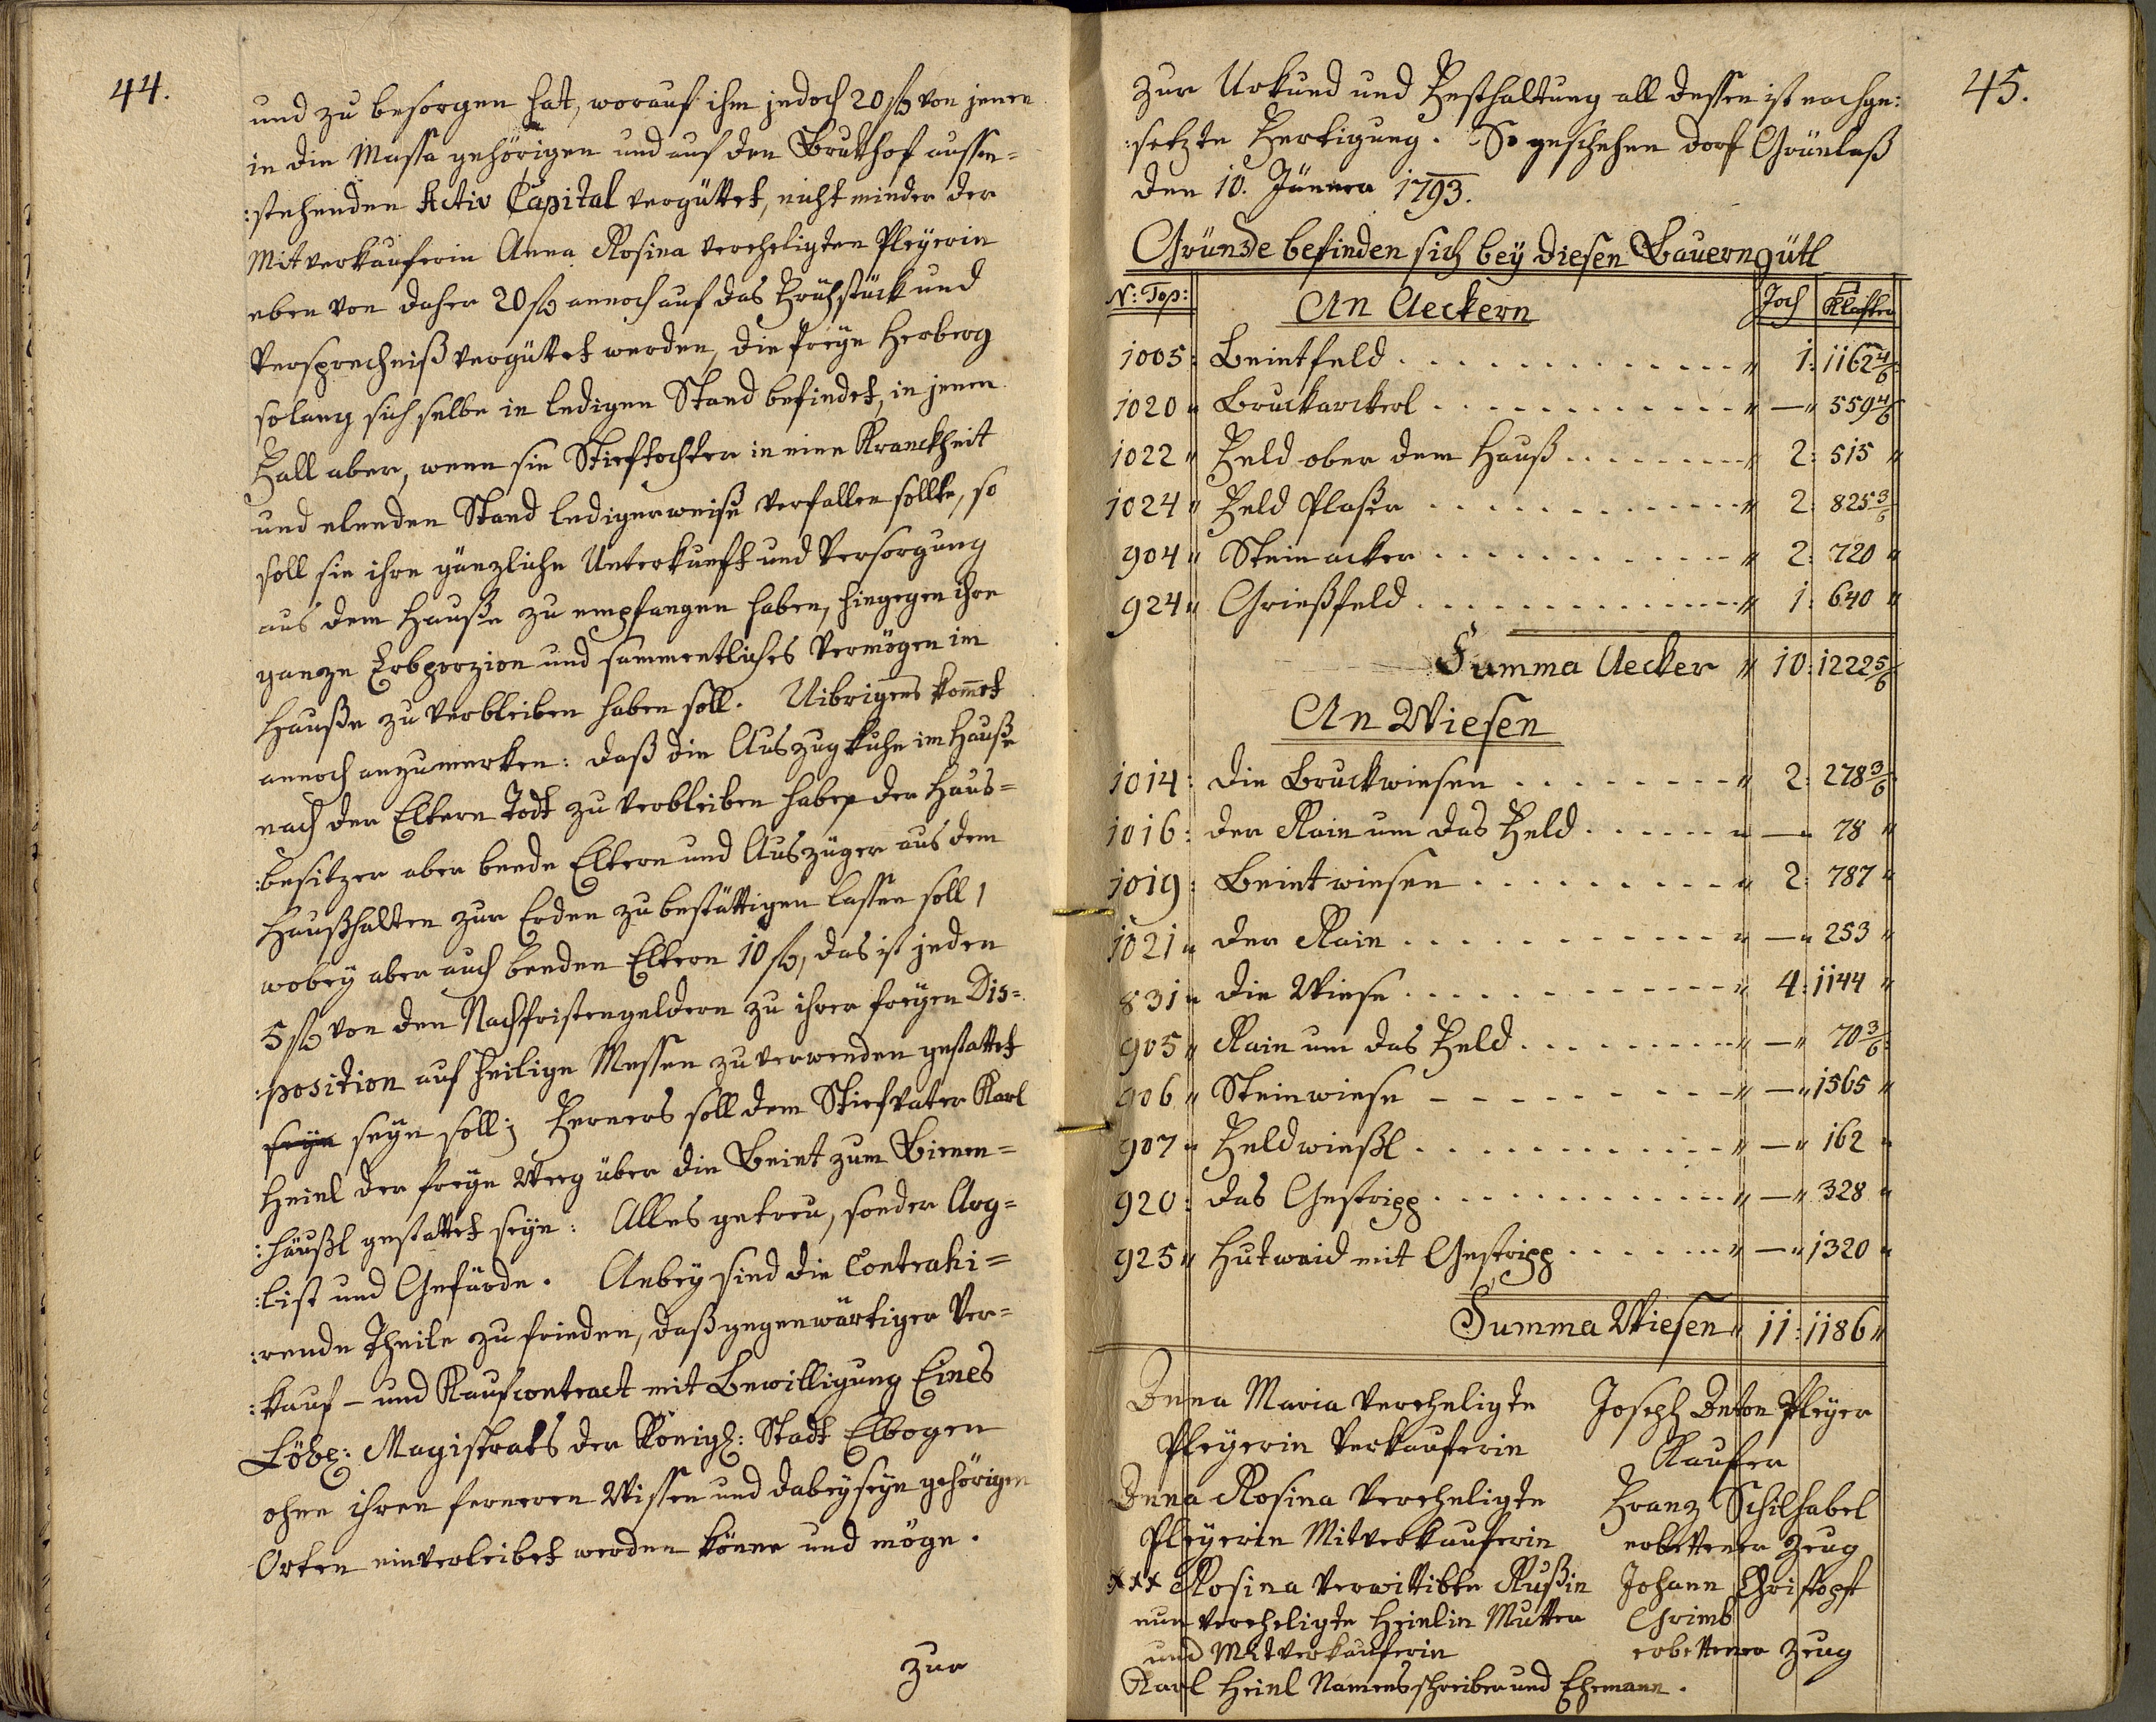 44.
und zu besorgen hat, worauf ihm jedoch 20 fl von jenen
in die Massa gehörigen und auf den Brukhof aussen=
:stehenden Activ Capital vergüttet, nicht minder der
Mitverkauferin Anna Rosina vereheligten Pleyerin
eben von daher 20 fl annoch auf das Frühstück und
Versprechniß vergüttet werden, die freye Herberg
solang sich selbe in ledigen Stand befindet, in jenen
Fall aber, wenn sie Stieftochter in eine Kranckheit
und elenden Stand ledigerweise verfallen sollte, so
soll sie ihre gänzliche Unterkunft und Versorgung
aus dem Hauße zu empfangen haben, hingegen ihre
ganze Erbporzion und sammentliches Vermögen im
Hauße zu verbleiben haben soll. Uibrigens komet
annoch anzumerken: daß die Auszugkuhe im Hauße
nach der Eltern Todt zu verbleiben habe, der Haus=
:besitzer aber beede Eltern und Auszüger aus dem
Haußhalten zur Erden zu bestättigen lassen soll,
wobey aber auch beeden Eltern 10 fl, das ist jeden
5 fl von den Nachfristengeldern zu ihrer freyen Dis=
:position auf heilige Messen zu verwenden gestattet
seyn seyn soll; Ferners soll dem Stiefvater Karl
Heinl der freye Weeg über die Beint zum Bienen=
:häußl gestattet seyn: Alles getreu, sonder Arg=
:list und Gefärde. Anbey sind die Contrahi=
:rende Theile zu frieden, daß gegenwärtiger Ver=
:kauf- und Kaufcontract mit Bewilligung Eines
Löbl: Magistrats der Königl: Stadt Elbogen
ohne ihren ferneren Wissen und dabeyseyn gehörigen
Orten einverleibet werden könne und möge.
zur
45.
zur Urkund und Festhaltung all dessen ist nachge:
:setzte Fertigung. So geschehen dorf Grünlaß
den 10. Jänner 1793.
Gründe befinden sich bey diesen Bauerngütl
N: Top: An Aeckern Joch Klafter
1005: Beintfeld . . . . . . . . . . . . " 1: 1162 4/6
1020 " Bruckackerl . . . . . . . . . . . . " —" 559 4/6
1022 " Feld ober dem Hauß . . . . . . . . " 2: 515 "
1024 " Feld Plaßer . . . . . . . . . . . . " 2: 825 3/6
904 " Steinacker . . . . . . . . . . . . " 2: 720 "
924 " Grießfeld . . . . . . . . . . . . " 1: 640 "
Summa Aecker " 10: 1222 5/6
An Wiesen
1014: die Bruckwiesen . . . . . . . . " 2: 278 3/6
1016: der Rain um das Feld . . . . . . " —" 78 "
1019: Beintwiesen . . . . . . . . . . " 2: 787 "
1021 " der Rain . . . . . . . . . . . . " —" 253 "
831 " die Wiese . . . . . . . . . . . . " 4: 1144 "
905 " Rain um das Feld . . . . . . . . . " —" 70 3/6:
906 " Steinwiese - - - - - - - - - " —" 1565 "
907 " Feldwießl . . . . . . . . . . . . " —" 162 "
920: das Gestripp . . . . . . . . . . . . " —" 328 "
925 " Hutwaid mit Gestripp . . . . . . . " —" 1320 "
Summa Wiesen " 11: 1186 "
Anna Maria vereheligte Joseph Anton Pleyer
Pleyerin Verkauferin Kaufer
Anna Rosina vereheligte Franz Schilhabel
Pleyerin Mitverkauferin erbettener Zeug
xxx Rosina verwittibte Rußin Johann Christoph
nun vereheligte Heinlin Mutter Grimb
und Mitverkauferin erbettener Zeug
Karl Heinl Namensschreiber und Ehemann.